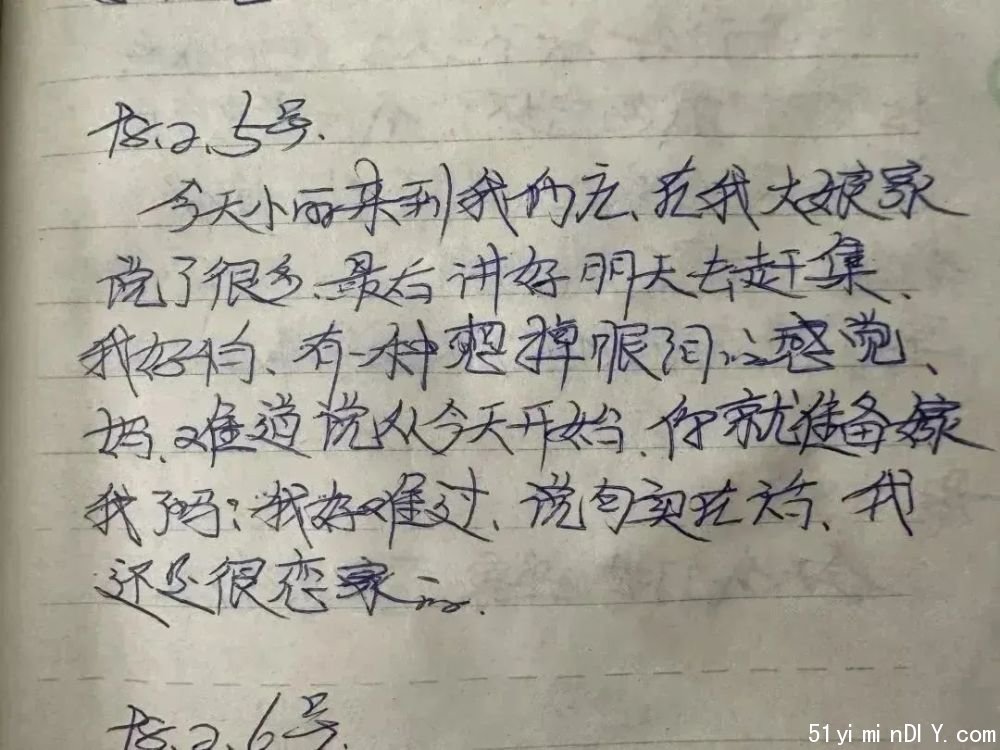 78.2.5号.
今天小丽来到我们庄、在我大娘家
说了很多、最后讲好明天去赶集、
我好怕、有一种想掉眼泪的感觉、
妈、难道说从今天开始、你就准备嫁
我了吗？我好难过、说句实在话、我
还是很恋家的.
78.2.6号.
51yiminDIY.com